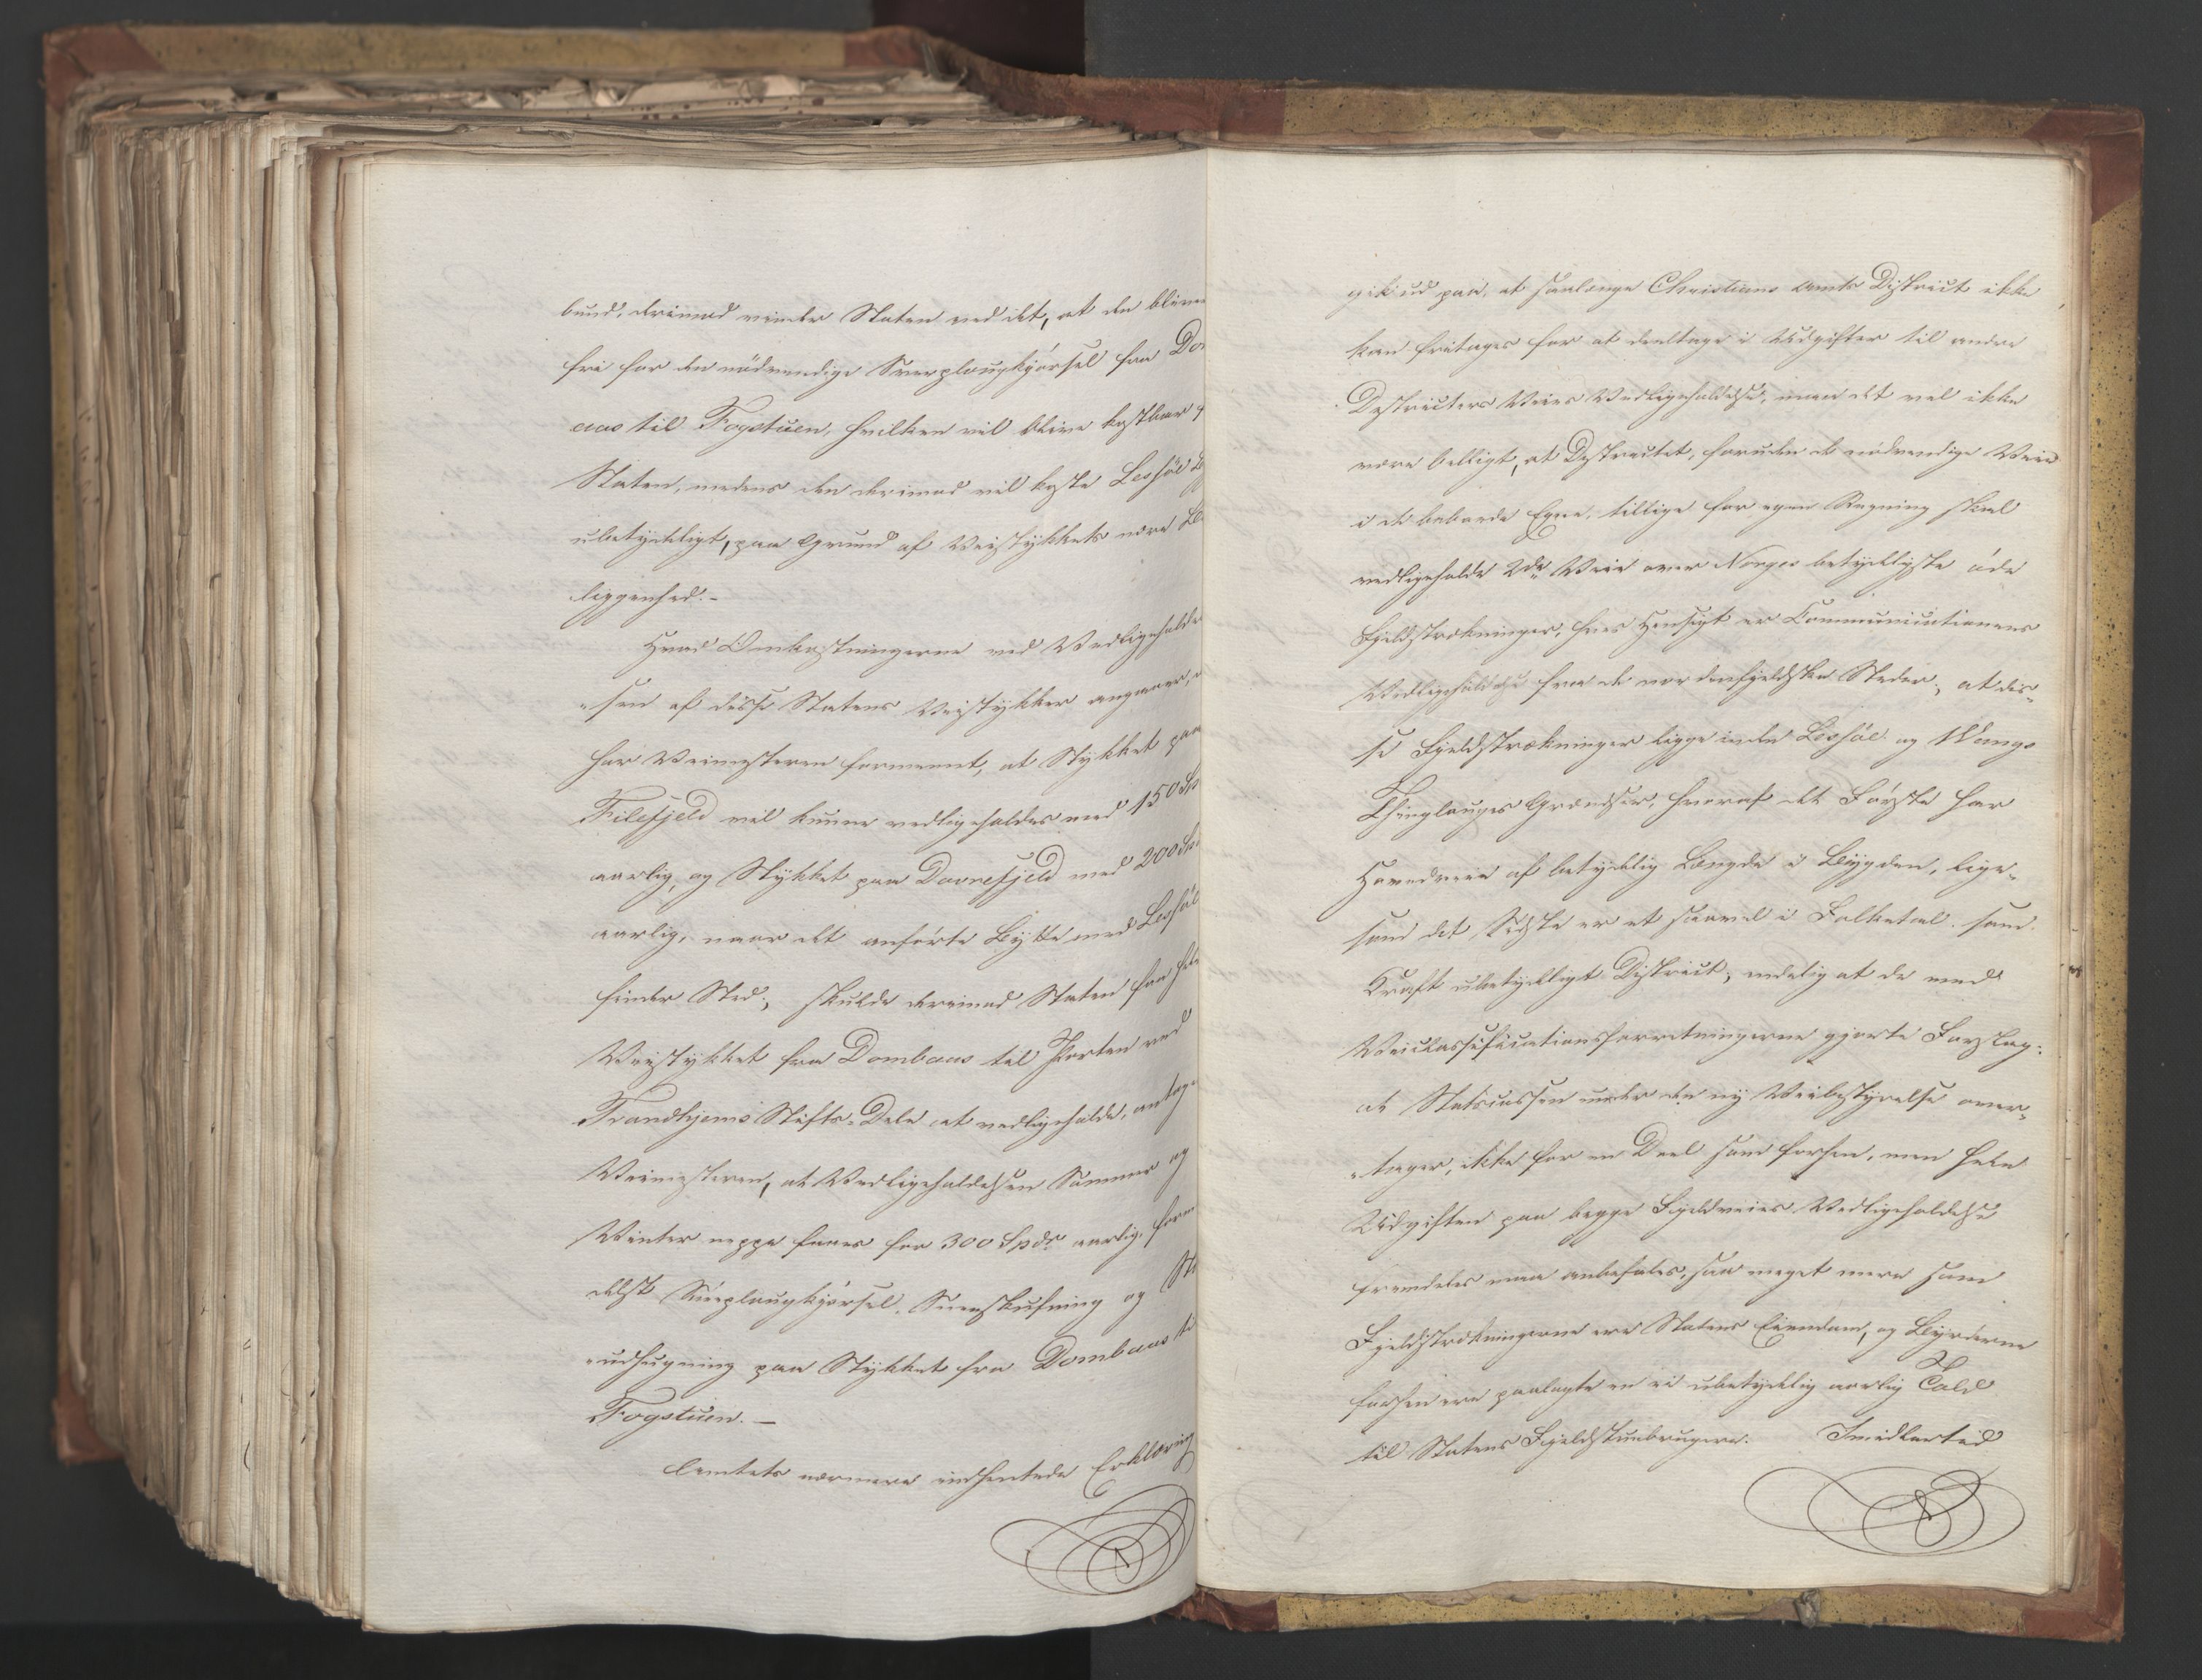 bund, derimod vinder Staten ved det, at den bliver
fri for den nödvendige Sneeplougkjörsel fra Dom
aas til Fogstuen, hvilken vil blive kostbar f
Staten, medens den derimod vil koste Lesjöe
ubetydeligt, paa Grund af Veistykkets nære Be
liggenhed.-
Hvad Omkostningerne ved Vedligeholdel
„sen af disse Statens Veistykker angaaer,
har Veimesteren formeent, at Stykket paa
Filefjeld vil kunne vedligeholdes med 150 Sp
aarlig, og Stykket paa Dovrefjeld med 200 Sp
aarlig, naar det anförte Bytte med Lesjöe
finder Sted; skulde derimod Staten faa hele
Veistykket fra Dombaas til Porten ved
Trondhjems Stifts-Dele at vedligeholde, antage
Veimesteren, at Vedligeholdelsen Sommer og
Vinter neppe faaes for 300 Spdr aarlig, form
delst Sneeplougkjörsel, Sneeskufning og
„udhugning paa Stykket fra Dombaas ti
Fogstuen. —
Amtets nærmere indhentede Erklæring
gik ud paa, at saalænge Christians Amts District ikke
kan fritages for at deeltage i Udgifter til andre
Districters Veies Vedligeholdelse, maa det vel ikke
være billigt, at Districtet, foruden de nödvendige Veie
i de beboede Egne, tillige for egen Regning skal
vedligeholde 2de Veie over Norges betydeligste öde
Fjeldstrækninger, hvis Hensigt er Communicationens
Vedligeholdelse fra de nordenfjeldske Steder; at dis-
se Fjeldstrækninger ligge inden Lesjöe og Wangs
Thinglauges Grændser, hvoraf det Förste har
Hovedveie af betydelig Længde i Bygden, lige-
som det Sidste er et saavel i Folketal som
Kraft ubetydeligt District; endelig at de med
Veiclassificationsforretningerne gjorte Forslag:
at Statscassen under den ny Veibestyrelse over-
„tager, ikke for en Deel som forhen, men hele
Udgiften paa begge Fjeldveies Vedligeholdelse
fremdeles maa anbefales, saa meget mere som
Fjeldstrækningerne ere Statens Eiendom, og Byrderne
forhen ere paalagte en ei ubetydelig aarlig Told
til Statens Fjeldstuebrugere. Imidlertid